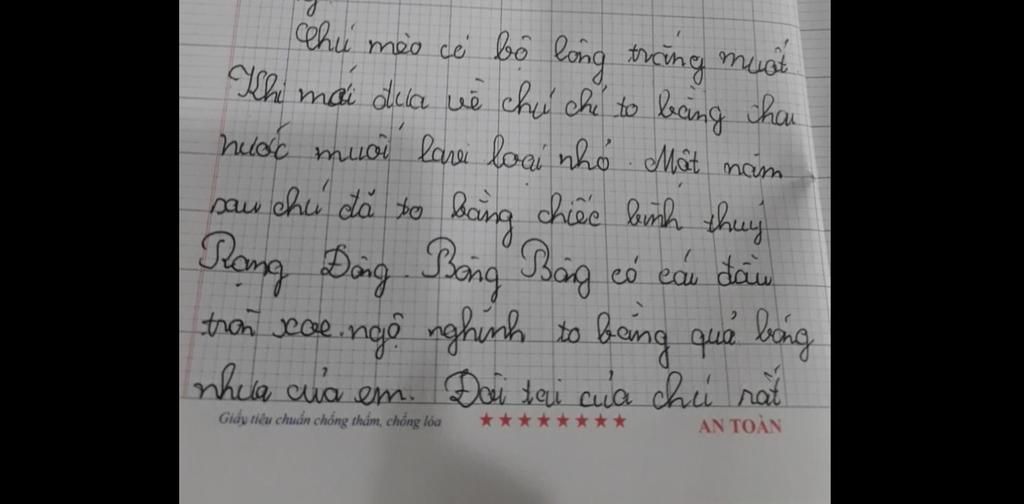 Chú mèo có bộ lông trắng muốt
Khi mới đưa về chú chỉ to bằng chai
nước muối loại nhỏ. Một năm
sau chú đã to bằng chiếc bình thuỷ
Rạng Đông. Bông Bông có cái đầu
tròn xoe. ngộ nghĩnh to bằng quả bóng
nhựa của em. Đôi tai của chú rất
Giấy tiêu chuẩn chống thấm, chống lóa
★★★★★★★★ AN TOÀN